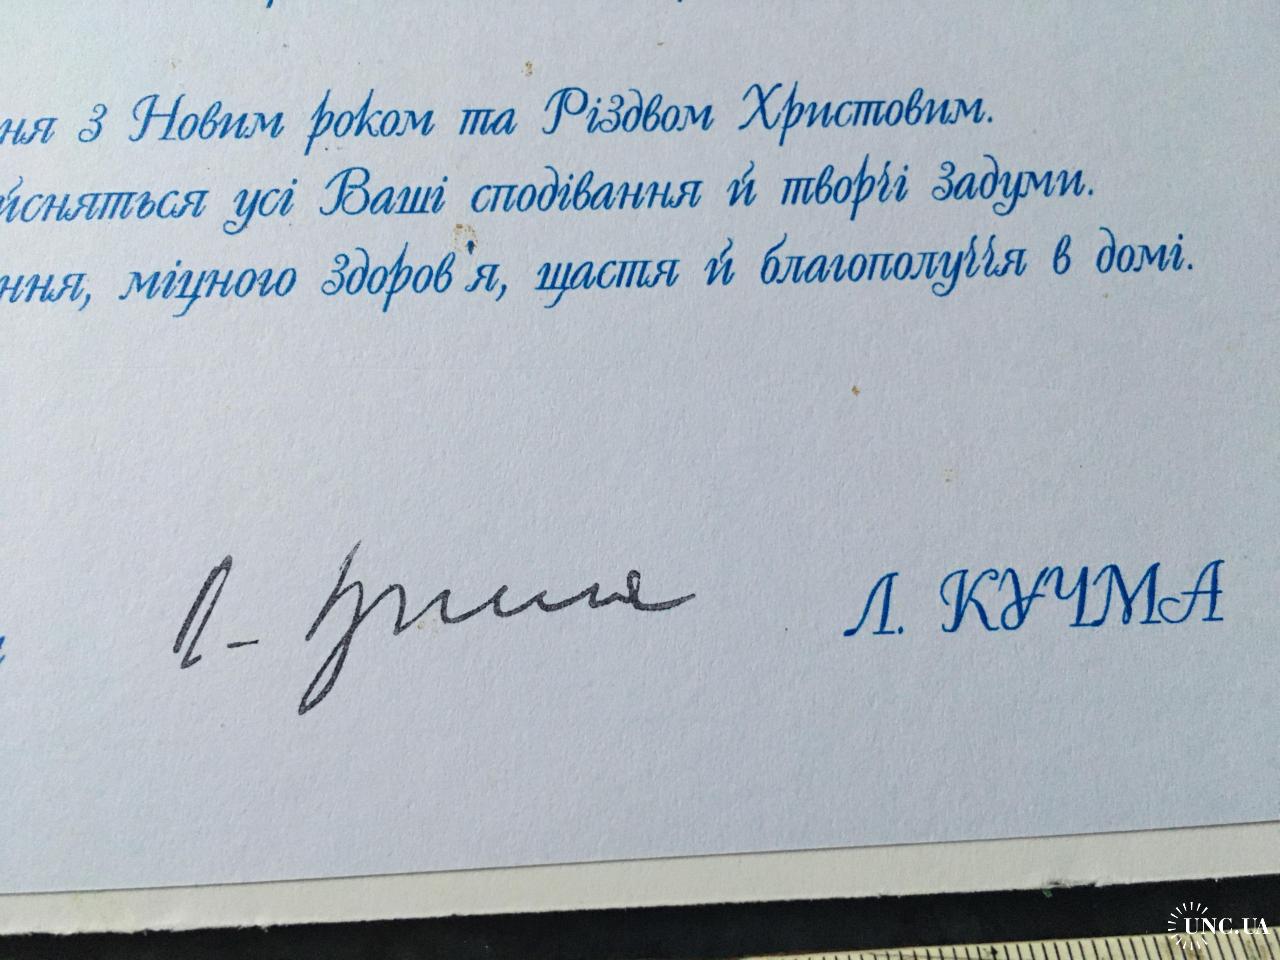 ня з Новим роком та Різдвом Христовим.
йсняться усі Ваші сподівання й творчі задуми.
ння, міцного здоров'я, щастя й благополуччя в домі.
Л. КУЧМА
UNC.UA